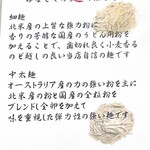 細麺
北米産の上質な強力粉に
香りの芳醇な国産のうどん用粉を
加えることで、歯切れ良く小麦香る
のど越しの良い当店自信の麺です
中太麺
オーストラリア産の力の強い粉を主に
北米産の粉と国産の全粒粉を
ブレンドし全卵を加えて
味を重視した弾力性の強い麺です